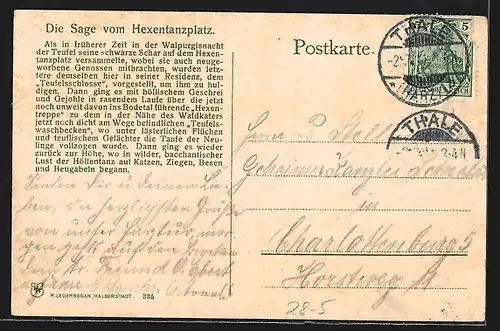 Die Sage vom Hexentanzplatz.
Als in früherer Zeit in der Walpurgisnacht
der Teufel seine schwarze Schar auf dem Hexen-
tanzplatz versammelte, wobei sie auch neuge-
worbene Genossen mitbrachten, wurden letz-
tere demselben hier in seiner Residenz, dem
„Teufelsschlosse“, vorgestellt, um ihm zu hul-
digen. Dann ging es mit höllischem Geschrei
und Gejohle in rasendem Laufe über die jetzt
noch unweit davon ins Bodetal führende „Hexen-
treppe“ zu dem in der Nähe des Waldkaters
jetzt noch dicht am Wege befindlichen „Teufels-
waschbecken“, wo unter lästerlichen Flüchen
und teuflischem Gelächter die Taufe der Neu-
linge vollzogen wurde. Dann ging es wieder
zurück zur Höhe, wo in wilder, bacchantischer
Lust der Höllentanz auf Katzen, Ziegen, Besen
und Heugabeln begann.
Postkarte.
5
THALE
(HARZ)
THALE
3-4N
Herrn P.
Geheimer Kanzlei
in
Charlottenburg 5
Horstweg
28-5
Senden Dir u. Deinen Lie-
ben, die herzlichsten Grüße
von unser
geht auf den Brocken
H. LEDERBOGEN, HALBERSTADT. 335